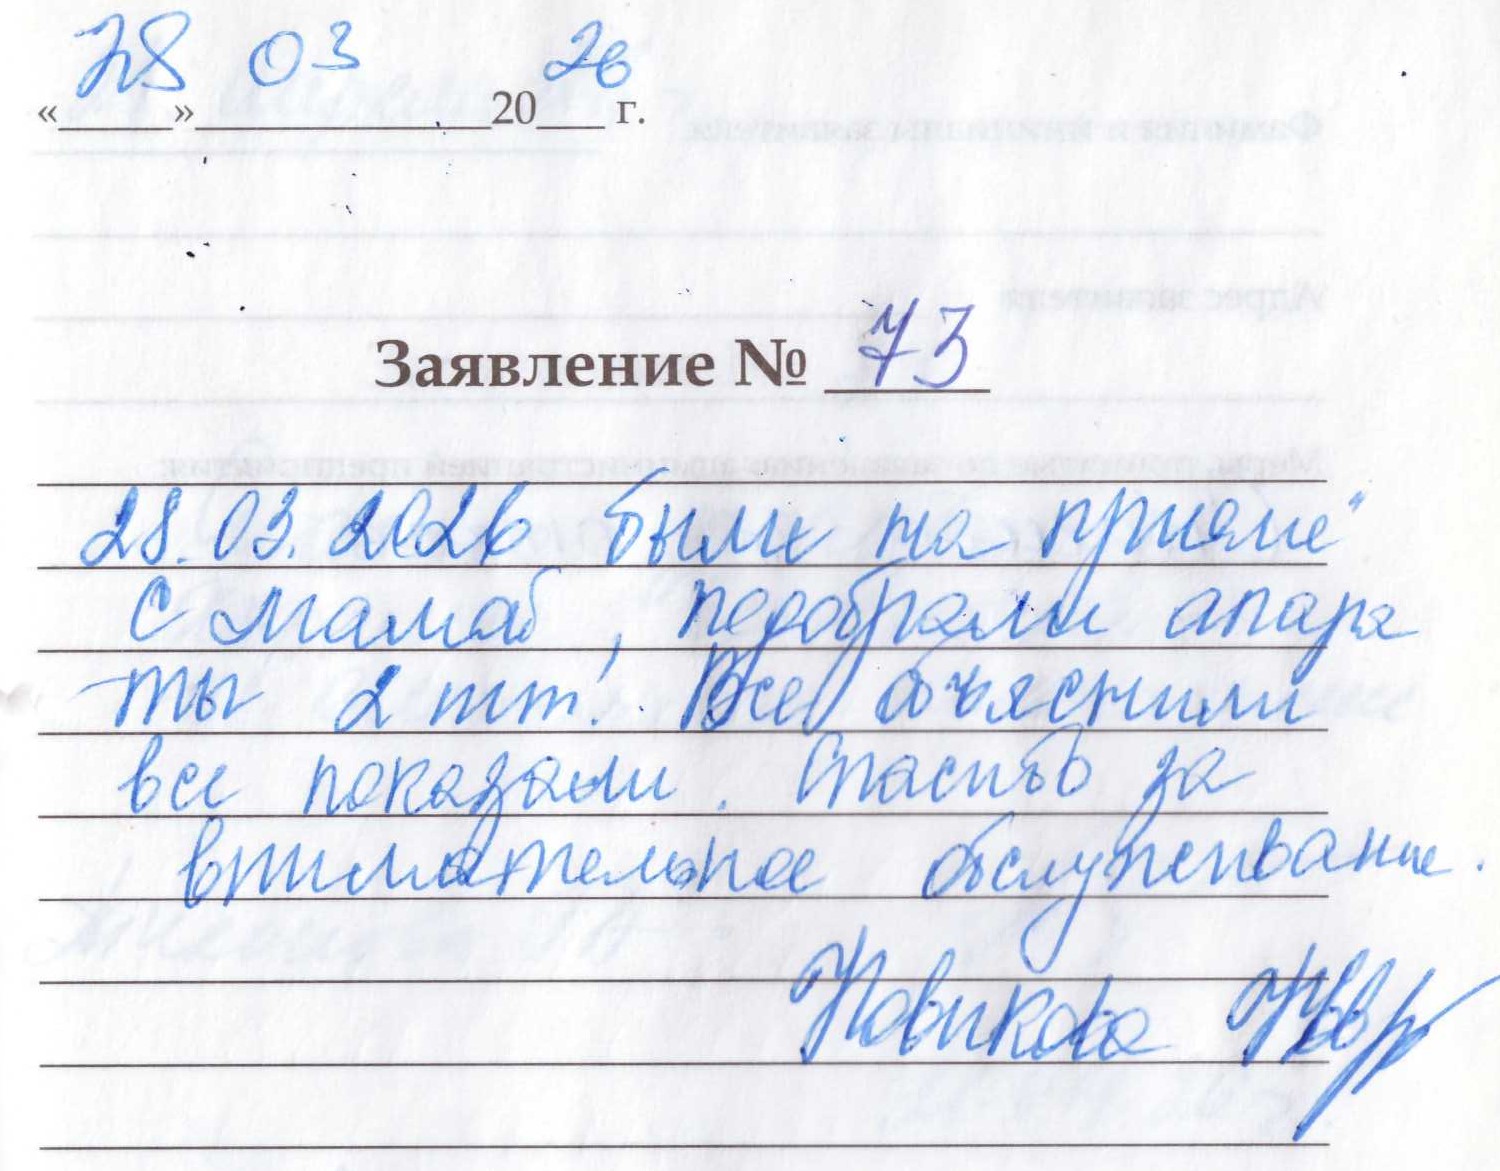 «28» 03 2026 г.
Заявление № 73
28.03.2026 были на приеме
с мамой, подобрали апара
ты 2 шт! Все объяснили
все показали. Спасибо за
внимательное обслуживание.
Новикова